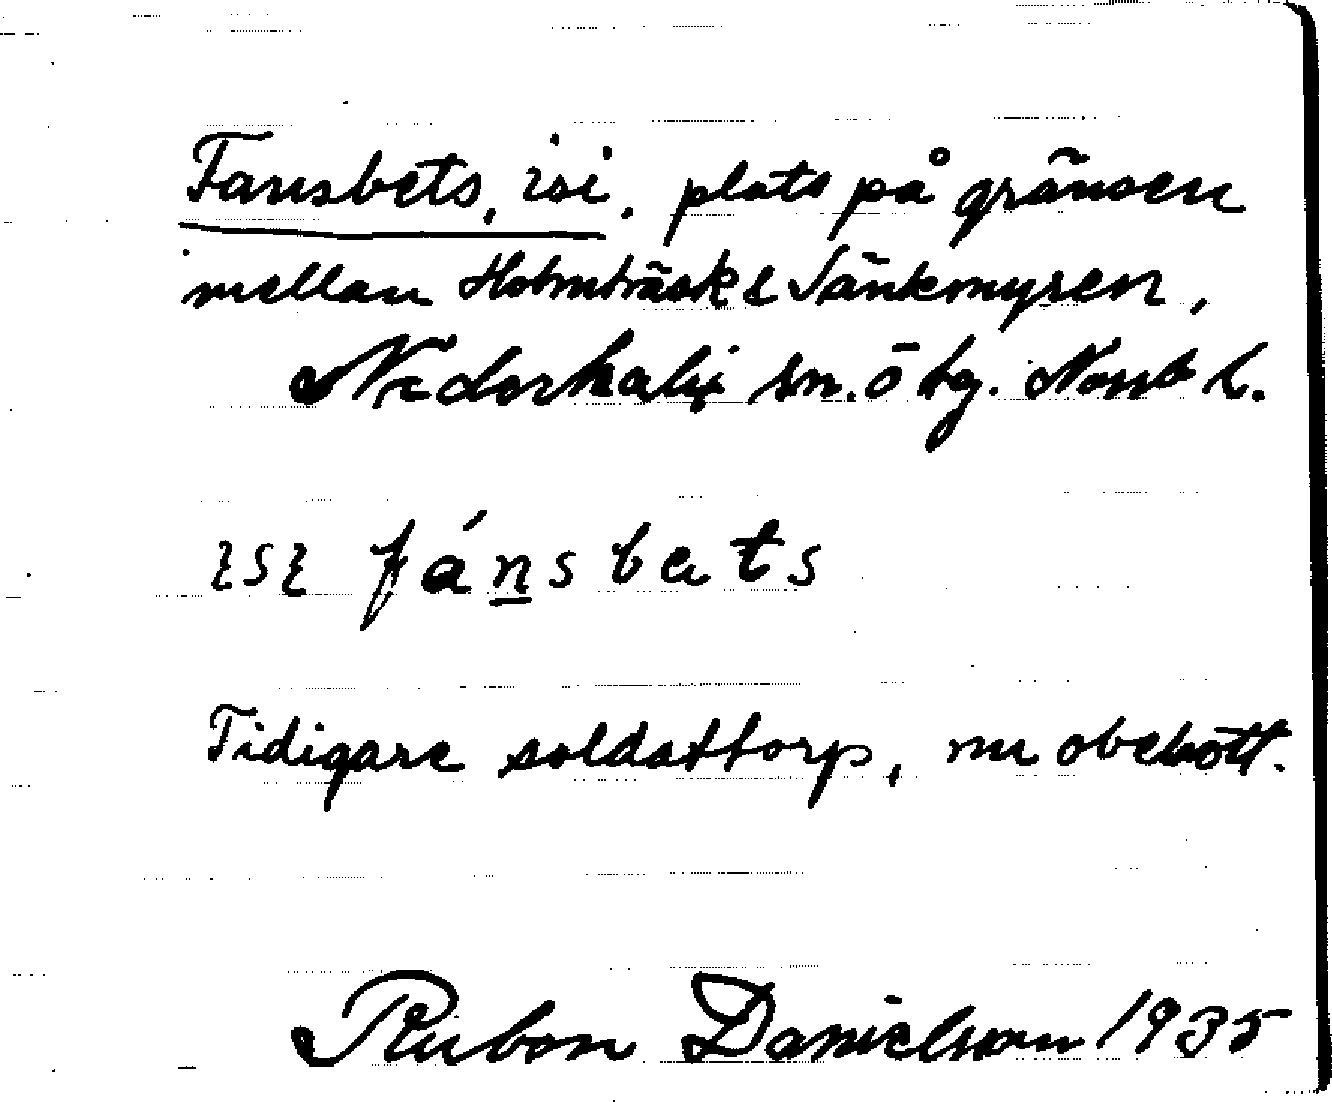 Fansbets, isi, plats på gränsen
mellan Holmträsk & Vänkmyren,
Nederkalix sn. ö bg. Norrb l.
ısı fánsbets
Tidigare soldattorp, nu obebott.
Rubon Danielsson 1935